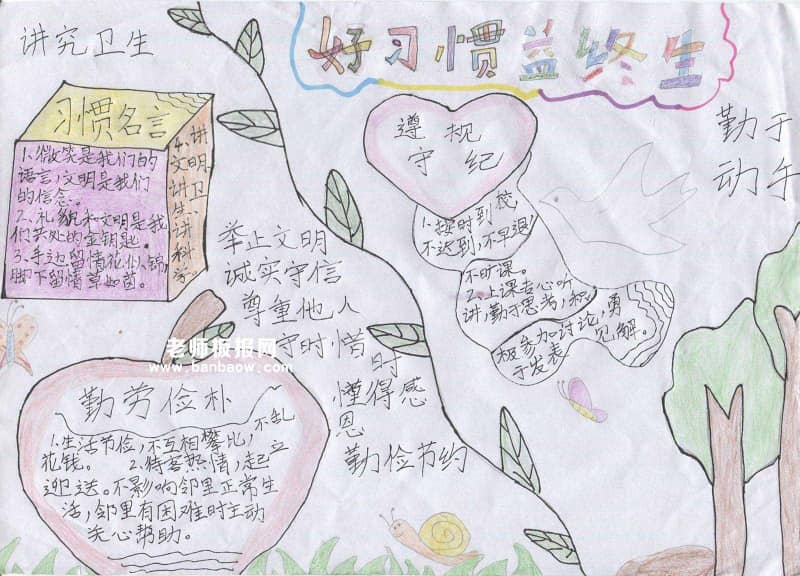 好习惯益终生
讲究卫生
习惯名言
1、微笑是我们的
语言,文明是我们
的信念。
2、礼貌和文明是我
们共处的金钥匙。
3、手边留情花似锦,
脚下留情草如茵。
4、讲
文明、讲卫
生、讲科
学。
遵规
守纪
1、按时到校,
不达到,不早退,
不旷课。
2、上课专心听
讲,勤于思考,积
极参加讨论,勇
于发表
见解。
勤于
动手
举止文明
诚实守信
尊重他人
守时惜
时
懂得感
恩
勤俭节约
老师板报网
www.banbaow.com
勤劳俭朴
1、生活节俭,不互相攀比,不乱
花钱。 2、待客热情,起立
迎送。不影响邻里正常生
活,邻里有困难时主动
关心帮助。